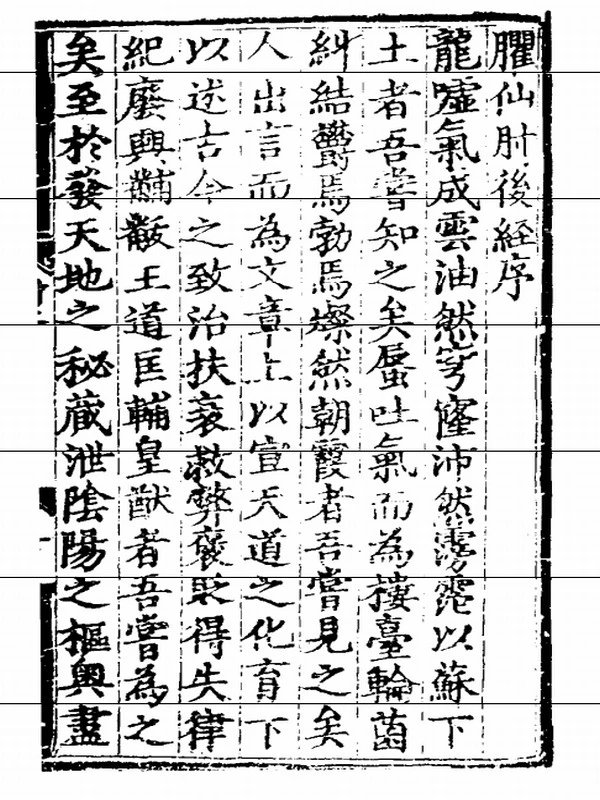 臞仙肘後経序
龍噓氣成雲油然穹窿沛然霶霈以蘇下
土者吾嘗知之矣蜃吐氣而為樓臺輪菌
糾結鬱焉勃焉燦然朝霞者吾嘗見之矣
人出言而為文章上以宣天道之化育下
以述古今之致治扶衰救弊褒貶得失律
紀廢興黼黻王道匡輔皇猷者吾嘗為之
矣至於發天地之秘蔵泄陰陽之樞奧盡